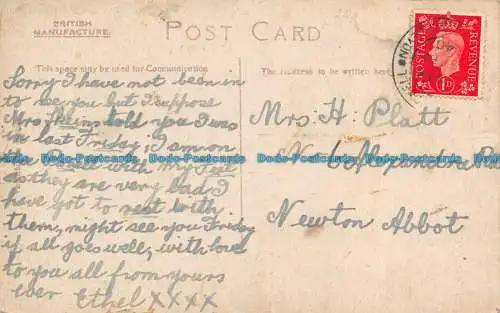 BRITISH
MANUFACTURE.
POST CARD
This space may be used for Communication
The Address to be written here
POSTAGE REVENUE
1D
Sorry I have not been in
to see you but I suppose
Mrs told you I was
in last Friday, I am on
the with my feet
as they are very bad I
have got to rest with
them, might see you Friday
if all goes well, with love
to you all from yours
ever Ethel XXXX
Mrs. H. Platt
6 Alexandra
Newton Abbot
Dodo-Postcards Dodo-Postcards Dodo-Postcards Dodo-Postcards
Dodo-Postcards Dodo-Postcards Dodo-Postcards Dodo-Postcards